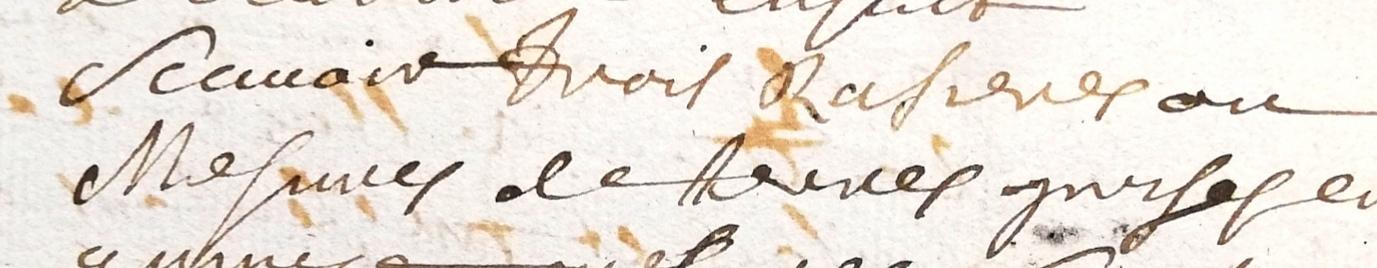 Scauoir trois Rasieres ou
Mesures de terres gisses en